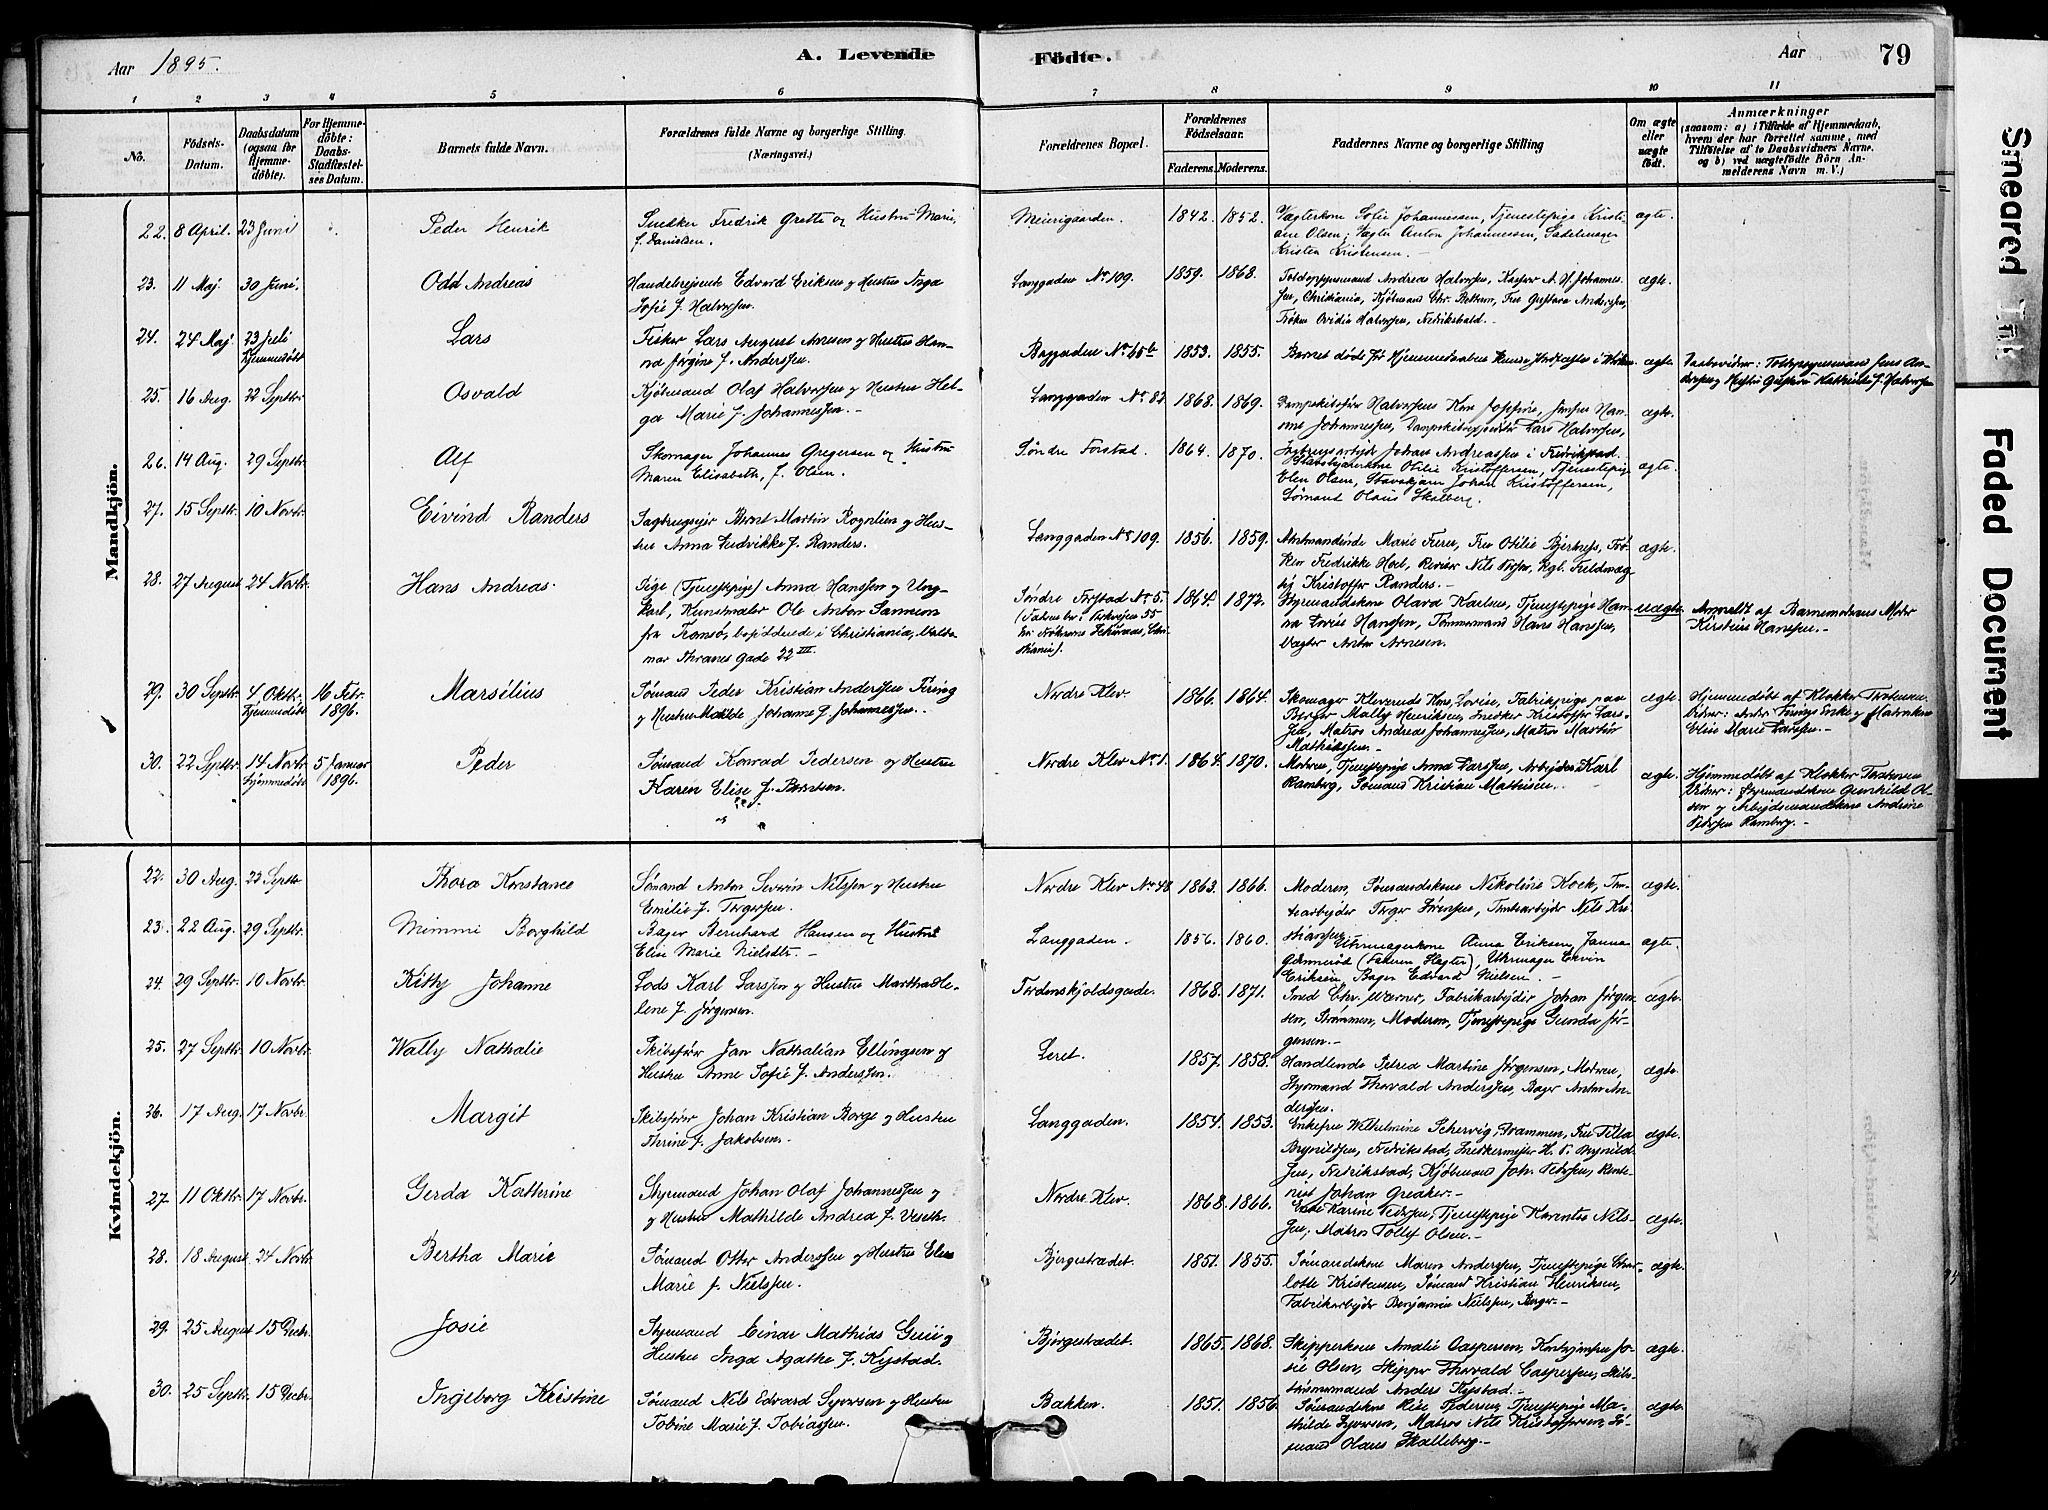 Aar 1895.
A. Levende
Födte.
Aar
79
1 2 3 4 5 6 7 8 9 10 11
No.
Födsels-
Datum.
Daabsdatum
(ogsaa for
Hjemme-
döbte).
For Hjemme-
döbte:
Daabs-
Stadfæstel-
ses Datum.
Barnets fulde Navn.
Forældrenes fulde Navne og borgerlige Stilling.
(Næringsvei.)
Forældrenes Bopæl.
Forældrenes
Födselsaar.
Faderens. Moderens.
Faddernes Navne og borgerlige Stilling
Om ægte
eller
uægte
født.
Anmærkninger
(saasom: a) i Tilfælde af Hjemmedaab,
hvem der har forrettet samme, med
Tilföielse af to Daabsvidners Navne.
og b) ved uægtefödte Börn An-
melderens Navn m. V.)
Mandkjön.
22. 8 April. 23 Juni
Peder Henrik
Snedker Fredrik Grette og Hustru Marie,
f. Danielsen.
Meierigaarden. 1842. 1852.
Vægterkone Sofie Johannessen, Tjenestepige Kristi-
ane Olsen; Vægter Anton Johannessen, Sadelmager
Kristen Kristensen.
ægte
23. 11 Maj. 30 Juni.
Odd Andreas
Handelsrejsende Edvard Eriksen og Hustru Inga
Sofie f. Halvorsen.
Langgaden No 109. 1859. 1868.
Toldopsynsmand Andreas Halvorsen, Kasserer A. H. Johannes-
sen, Christiania, Kjøbmand Chr. Bettum, Fru Gustava Andersen,
Frøken Ovidia Halvorsen, Fredrikshald.
ægte.
24. 24 Maj 23 Juli
Hjemmedøbt
Lars
Fisker Lars August Arnesen og Hustru Han-
na Jørgine f. Anderssen.
Baggaden No 65b 1853. 1855.
Barnet døde før Hjemmedaabens
ægte
Daabsvidner: Toldopsynsmand Jens An-
dersen og Gustava Kathrine f. Halvorsen
25. 16 Aug. 22 Septbr.
Osvald
Kjøbmand Olaf Halvorsen og Hustru Hel-
ga Marie f. Johannessen.
Langgaden No 82 1868. 1869.
Dampskibsfører Halvorsens Kone Josefine, Jomfru Han-
na Johannessen, Dampskibsexpeditør Lars Halvorsen,
Johan Andreassen i Fredrikstad.
ægte.
26. 14 Aug. 29 Septbr.
Alf
Skomager Johannes Gregersen og Hustru
Maren Elisabeth, f. Olsen.
Søndre Forstad. 1864. 1870.
Stavskjærerkone Otilie Kristoffersen, Tjenestepige
Elen Olsen, Stavskjærer Johan Kristoffersen,
Sømand Olaus Skalberg.
ægte
27. 15 Septbr. 10 Novbr.
Eivind Randers
Sagbrugsejer Bernt Martin Rognlien og Hus-
tru Anna Ludvikke f. Randers.
Langgaden No 109. 1856. 1859.
Amtmandinde Marie Furu, Fru Otilie Bjertnes, Frø-
ken Fredrikke Hoel, Revisor Nils Furu, Rgl. Fuldmæg-
tig Kristoffer Randers.
ægte.
28. 27 August 24 Novbr.
Hans Andreas.
Pige (Tjenestepige) Anna Hanssen og Ung-
karl, Kunstmaler Ole Anton Sannum
fra Tromsø, boende i Christiania, Valde-
mar Thranes gade 22 III.
Søndre Forstad No 5.
1864. 1872.
Styrmandskone Olava Karlsen, Tjenestepige Han-
na Lovise Hanssen, Tømmermand Hans Hanssen,
Vægter Anton Arnesen.
uægte.
Anmeldt af Barnemoderens Moder
Kirstine Hanssen.
29. 30 Septbr. 4 Oktbr. 16 Febr.
Hjemmedøbt 1896.
Marsilius
Sømand Peder Kristian Anderssen Firing
og Hustru Matilde Johanne f. Johannessen.
Nordre Klev. 1866. 1864.
Skomager Kleveruds Kone, Lovise, Fabrikpige paa
Berger Mally Henriksen, Snedker Kristoffer Lars-
sen, Matros Andreas Johannessen, Matros Martin
Mathissen.
ægte.
Hjemmedøbt af Klokker Thorsen.
Vidner: Enke og Matroskone
Elise Marie Larssen.
30. 22 Septbr. 14 Novbr. 5 Januar
Hjemmedøbt 1896.
Peder
Sømand Konrad Pedersen og Hustru
Karen Elise f. Berntsen.
Nordre Klev No 1. 1864. 1870.
Moderen, Tjenestepige Anna Larssen, Arbejder Karl
Ramberg, Sømand Kristian Mathisen.
ægte
Hjemmedøbt af Klokker Thorsen
Vidner: Styrmandskone Gunhild Ol-
sen og Arbejdsmandskone Andrine
Pedersen Ramberg.
Kvindekjön.
22. 30 Aug. 22 Septbr.
Thora Konstance
Sømand Anton Severin Nilssen og Hustru
Emilie f. Torgersen.
Nordre Klev No 48. 1863. 1866.
Moderen, Sømandskone Nikoline Kock, Tom-
tearbejder Torger Sørensen, Tomtearbejder Nils Kri-
stiansen.
ægte.
23. 22 Aug. 29 Septbr.
Mimmi Borghild
Bager Bernhard Hansen og Hustru
Elise Marie Nielsdtr.
Langgaden. 1856. 1860.
Uhrmagerkone Anna Eriksen, Janna
Gunnerød (Faderen Hægter), Uhrmager Edvin
Eriksen, Bager Edvard Nielsen.
ægte.
24. 29 Septbr. 10 Novbr.
Kithy Johanne
Lods Karl Larssen og Hustru Martha He-
lene f. Jørgensen.
Tordenskjoldsgade. 1868. 1871.
Smed Chr. Werner, Fabrikarbejder Johan Jørgen-
sen, Drammen, Moderen, Tjenestepige Gunda Jør-
gensen.
ægte.
25. 27 Septbr. 10 Novbr.
Wally Nathalie
Skibsfører Jan Nathalian Ellingsen og
Hustru Anne Sofie f. Anderssen.
Leret. 1857. 1858.
Handlende Petrea Martine Jørgensen, Moderen,
Styrmand Thorvald Anderssen, Bager Anton An-
derssen.
ægte.
26. 17 Aug. 17 Novbr.
Margit
Skibsfører Johan Kristian Borge og Hustru
Thrine f. Jakobsen.
Langgaden. 1854. 1853.
Enkefru Wilhelmine Schervig, Drammen, Fru Tilla
Brynildsen, Fredrikstad, Snedkermester H. P. Brynild-
sen, Fredrikstad, Kjøbmand Joh. Petersen, Rente-
nist Johan Greaker.
ægte.
27. 11 Oktbr. 17 Novbr.
Gerda Kathrine
Styrmand Johan Olaf Johannessen og
og Hustru Mathilde Andrea f. Veseth.
Nordre Klev. 1868. 1866.
Enke Karine Petersen, Tjenestepige Karentse Nils-
sen, Matros Tollef Olsen.
ægte.
28. 18 August 24 Novbr.
Bertha Marie
Sømand Otto Anderssen og Hustru Elen
Marie f. Nielsen.
Bjergestrædet. 1851. 1855.
Sømandskone Maren Anderssen, Tjenestepige Char-
lotte Kristensen, Sømand Kristian Henriksen,
Fabrikarbejder Benjamin Nielssen, Berger.
ægte.
29. 25 August 15 Decbr.
Josie
Styrmand Einar Mathias Guii og
Hustru Inga Agathe f. Kystad.
Bjørgestrædet. 1865. 1868.
Skipperkone Amalie Caspersen, Jo-
sie Olsen, Skipper Thorvald Caspersen, Skibs-
tømmermand Anders Kystad.
ægte.
30. 25 Septbr. 15 Decbr.
Ingeborg Kristine
Sømand Nils Edvard Syversen og Hustru
Tobine Marie f. Tobiassen.
Bakken. 1851. 1856.
Sømandskone Elise Pedersen, Tjenestepige Ma-
thilde Syversen, Matros Nils Kristoffersen, Sø-
mand Olaus Skalleberg.
ægte.
Smeared Ink
Faded Document